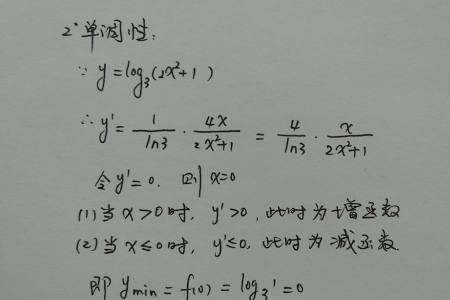 2° 单调性:
∵ y = log₃(2x²+1)
∴ y' = 1/ln3 · 4x/2x²+1 = 4/ln3 · x/2x²+1
令 y'=0. 则 x=0
(1) 当 x>0时, y'>0, 此时为增函数
(2) 当 x≤0时, y'≤0, 此时为减函数.
即 y min = f(0) = log₃1 = 0